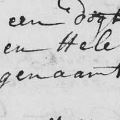 een dogt
en Hele
genaamt